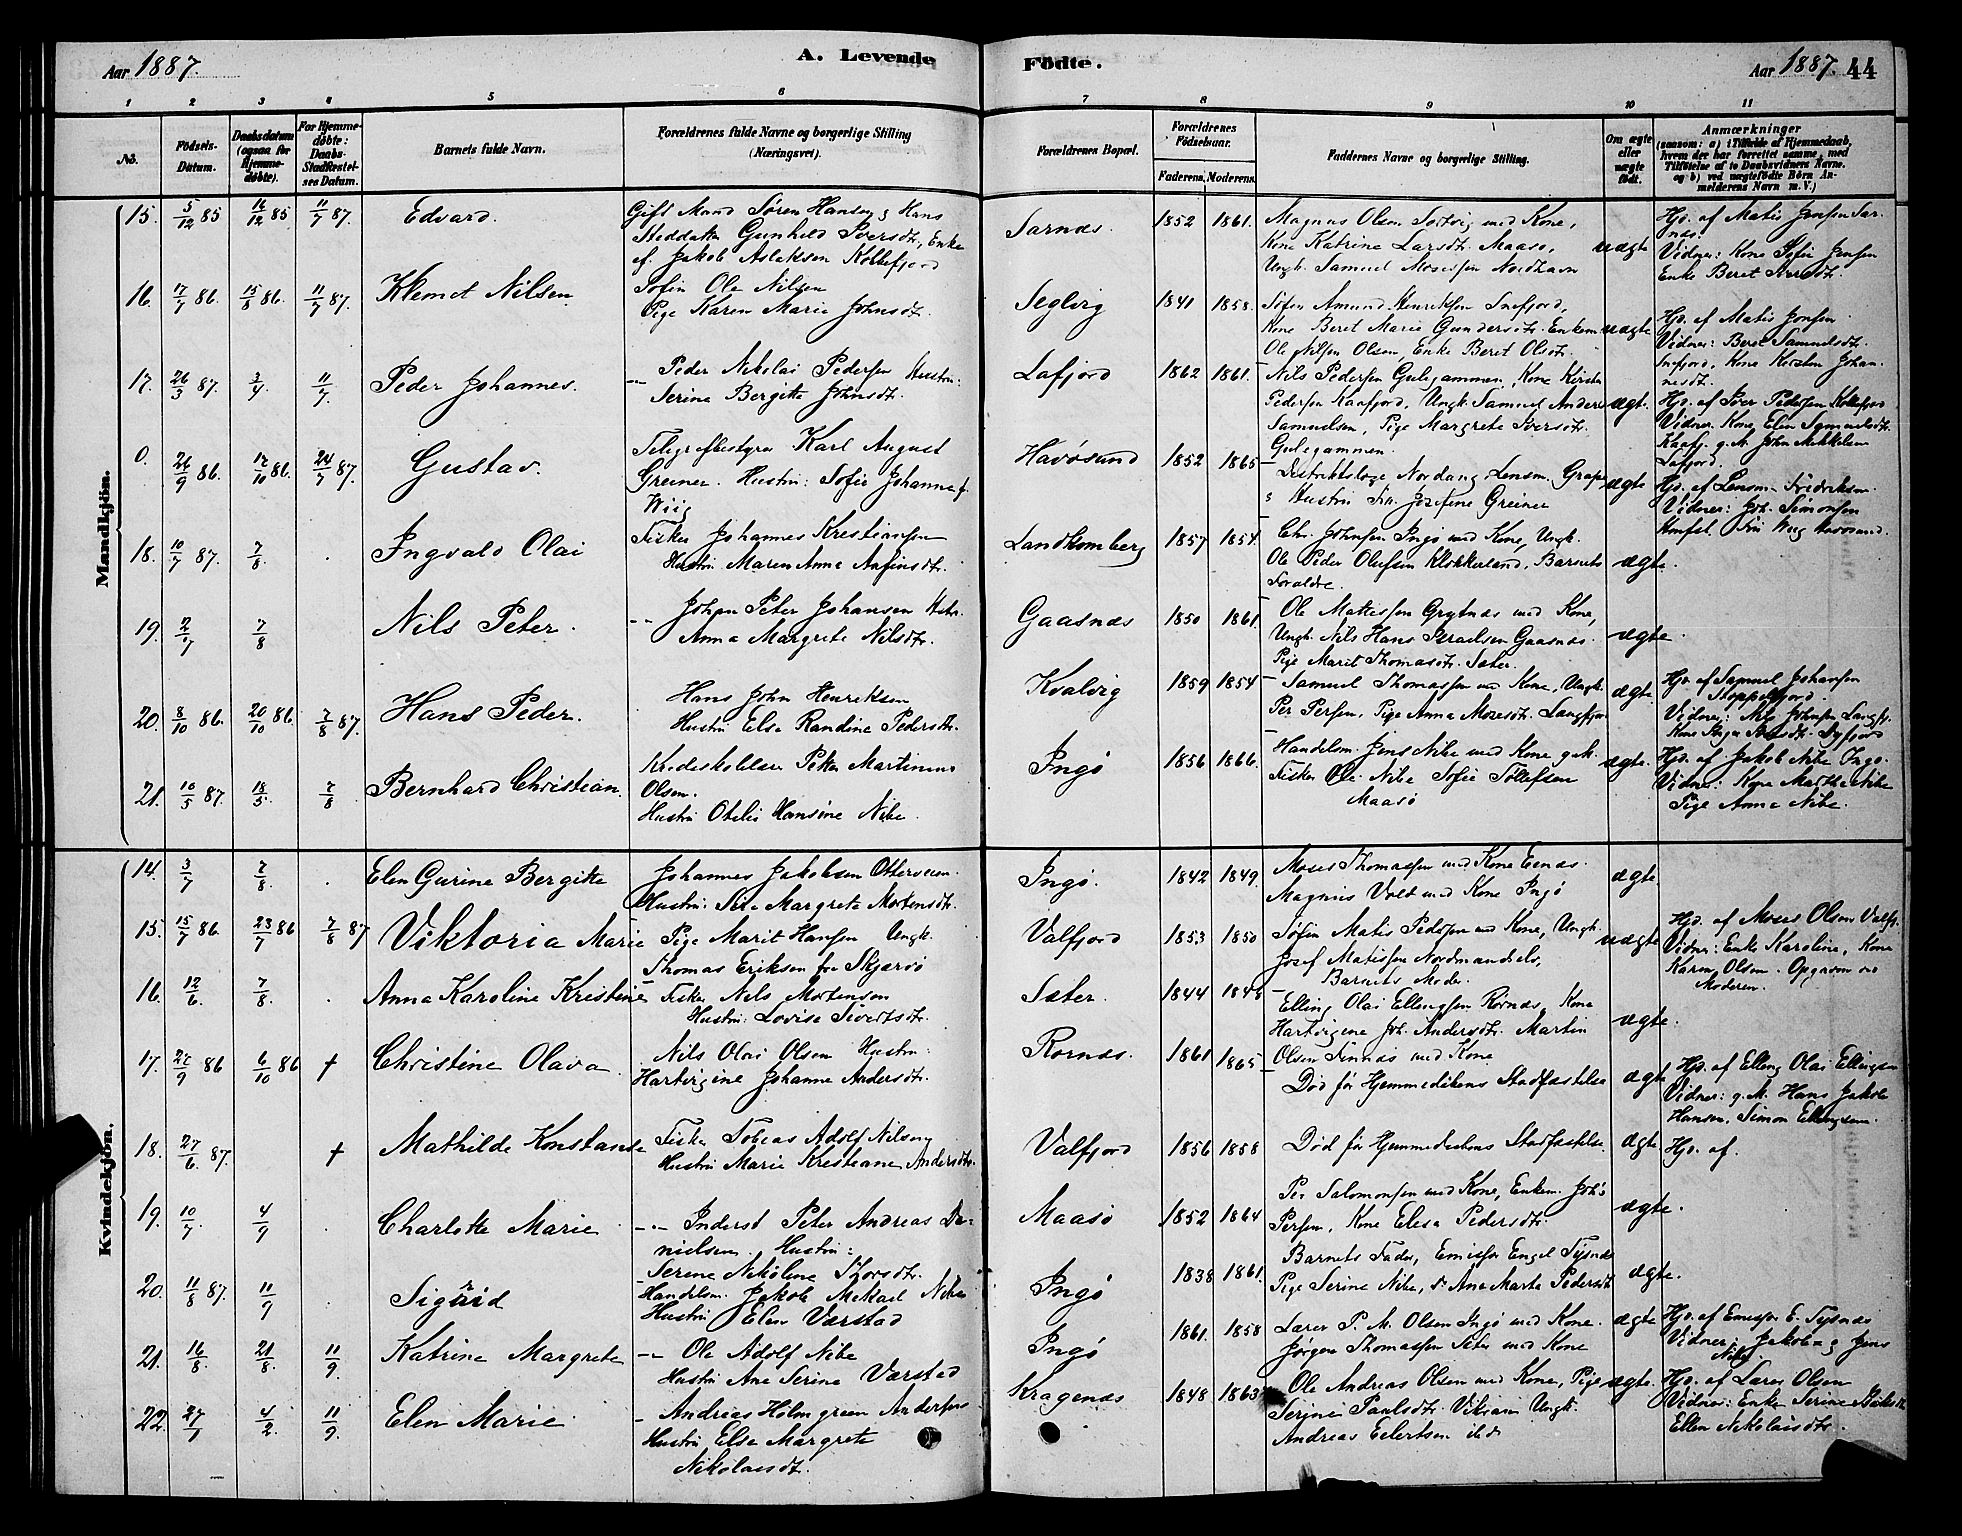 Aar 1887.
A. Levende
Födte.
Aar 1887. 44
1 2 3 4 5 6 7 8 9 10 11
No.
Födsels-
Datum.
Daabsdatum
(ogsaa for
Hjemme-
døbte).
For Hjemme-
døbte:
Daabs-
Stadfæstel-
ses Datum.
Barnets fulde Navn.
Forældrenes fulde Navne og borgerlige Stilling
(Næringsvei).
Forældrenes Bopæl.
Forældrenes
Födselsaar.
Faderens. Moderens.
Faddernes Navne og borgerlige Stilling.
Om ægte
eller
uægte
født.
Anmærkninger
(saasom: a) i Tilfælde af Hjemmedaab,
hvem der har forrettet samme, med
Tilföielse af to Daabsvidners Navne,
og b) ved uægtefödte Börn An-
melderens Navn m. V.)
Mandkjön.
15. 5/12 85 16/12 85 11/7 87. Edvard.
Gift Mand Søren Hansen, Hans
Steddatter Gunhild Iversdt, Enke
af Jakob Aslaksen Kollefjord
Sarnæs. 1852 1861.
Magnus Olsen Sortvig med Kone,
Kone Katrine Larsdt. Maasø,
Ungk. Samuel Mosessen Nordhavn
uægte
Hjd. af Matis Jonsen Sar-
næs.
Vidner: Kone Sofie Jonsen
Enke Beret
16. 17/7 86. 15/8 86. 11/7 87. Klemet Nilsen
Sofin Ole Nilsen
Pige Karen Marie Johnsdt.
Seglvig 1841 1858.
Søfin Amund Henriksen Snefjord,
Kone Beret Marie Gundersdt. Enkem
Ole Nilsen Olsen, Enke Beret Olsdt.
uægte
Hjd. af Matis Jonsen
Vidner: Beret Samuelsdt.
Snefjord, Kone Kirsten Johan-
nesdt.
17. 26/3 87. 3/4 11/7 Peder Johannes.
-- Peder Nikolai Pedersen Hustru:
Serine Bergitte Johnsdt.
Lafjord 1862 1861.
Nils Pedersen Gulegammen, Kone Kirsten
Pedersen Kaafjord, Ungk. Samuel Anders
Samuelsen, Pige Margrete Iversdt.
Gulegammen.
ægte.
Hjd. af Iver Pedersen Kollefjord
Vidner: Kone Elen Sammelsdt.
Kaafj. g. M. John Mikkelsen
Lafjord.
0. 26/9 86. 17/10 86. 24/7 87. Gustav.
Telegrafbestyrer Karl August
Greiner. Hustru: Sofie Johanne f.
Wiig
Havøsund 1852 1865
Distriktslæge Nordang Lensm.
s Hustru Frk. Josefine Greiner
ægte
Hjd. af Lensm. Fridriksen
Vidner: Joh. Simonsen
Frú Wiig Havøsund.
18. 10/7 87. 7/8 . Ingvald Olai
Fisker Johannes Kristiansen
Hustru Maren Anna Anfinsdt.
1857 1854.
Chr. Johnsen Ingø med Kone, Ungk.
Ole Peder Olufsen Klokkerland, Barnets
Foraldre.
ægte.
19. 2/7 7/8 Nils Peter.
-- Johan Peter Johansen Hstr.
Anna Margrete Nilsdt.
Gaasnæs 1850 1861.
Ole Mattissen Grytnæs med Kone,
Ungk. Nils Hans Israelsen Gaasnæs.
Pige Marit Thomasdt. Sæter.
ægte.
20. 8/10 86. 20/10 86. 7/8 87. Hans Peder.
Hans John Henriksen
Hustru Else Randine Pedersdt.
Kvalvig 1859 1854
Samuel Thomassen m Kone, Ungk.
Per Persen, Pige Anna Mosesdt. Langfjor
ægte.
Hjd. af Samuel Johansen
Stoppelfjord.
Vidner: Nils Johnsen Langfj.
Kone Inger Dyfjord
21. 10/5 87. 18/5 7/8 Bernhard Christian.
Kredsskolelærer Peter Martinius
Olsen.
Hustru Otelie Hansine Nibe.
Ingø 1856 1866.
Handelsm. Jens Nibe med Kone g. M.
Fisker Ole Nibe Sofie Tollefsen
Maasø
ægte.
Hjd. af Jakob Nibe Ingø.
Vidner: Kone Marthe Nibe
Pige Anna Nibe.
Kvindekjön.
14. 3/7 7/8 . Elen Gurine Bergitte
Johannes Jakobsen Otterværen.
Hustru: Sire Margrete Mortensdt.
Ingø. 1842 1849.
Moses Thomassen med Kone Eenæs.
Magnus Vold med Kone Ingø
ægte.
15. 15/7 86. 23/7 86 7/8 87 Viktoria Marie
Pige Marit Hansen Ungk.
Thomas Eriksen fra Skjærvø
Valfjord 1853 1850
Søfin Matis Pedersen med Kone, Ungk.
Josef Matissen Nordmandselv,
Barnets Moder.
uægte
Hjd. af Moses Olsen Valfj.
Vidner: Enke Karoline, Kone
Karen Olsen. Opgaven ved
Moderen.
16. 12/6. 7/8. . Anna Karoline Kristine
Fisker Nils Mortensen
Hustru: Lovise Sivertsdt.
Sæter. 1844 1848
Elling Olai Ellingsen Rørnæs, Kone
Hartvigine Joh. Andersdt. Martin
Olsen Finnæs med Kone
ægte.
17. 27/9 86 6/10 86 † Christine Olava
Nils Olai Olsen Hustru:
Hartvigine Johanne Andersdt.
Rørnæs. 1861 1865
Død før Hjemmedåbens Stadfæstelse
ægte
Hjd. af Elling Olai Ellingsen
Vidner: g. M. Hans Jakob
Hansen, Simon Ellingsen.
18. 27/6. 87. † Mathilde Konstanse
Fisker Tobias Adolf Nilsen
Hustru Marie Kristiane Andersdt.
Valfjord 1856 1858
Død før Hjemmedaabens Stadfæstelse.
ægte.
Hjd. af.
19. 10/7 4/9 . Charlotte Marie
-- Inderst Peter Andreas Da-
nielsen. Hustru:
Serine Nikoline Thorsdt.
Maasø 1852 1864
Per Salomonsen med Kone, Enkem. Joh's
Persen, Kone Elesa Pedersdt.
ægte.
20. 11/8 87. 11/9 . Sigrid
Handelsm. Jakob Mikael Nibe
Hustru Elen Værstad
Ingø 1838 1861.
Barnets Fader, Emissær Engel Tysnæs
Pige Serine Nibe, do Ane Marta Pedersdt
ægte.
21. 16/8. 21/8. 11/9. Katrine Margrete
-- Ole Adolf Nibe
Hustru Ane Serine Værstad
Ingø 1861. 1858
Lærer P. M. Olsen Ingø med Kone.
Jørgen Thomassen Sæter med Kone
ægte
Hjd. af Emissær E. Tysnæs
Vidner: Jakob og Jens
Nibe
22. 27/1 4/2 11/9. Elen Marie
- Andreas Holmgreen Andersen
Hustru Else Margrete
Nikolaisdt.
Kragenæs 1848 1863
Ole Andreas Olsen med Kone, Pige
Serine Paulsdt. Ungk.
Andreas Eilertsen ibid
ægte.
Hjd. af Lærer Olsen
Vidner: Enke Serine
Ellen Nikolaisdt.